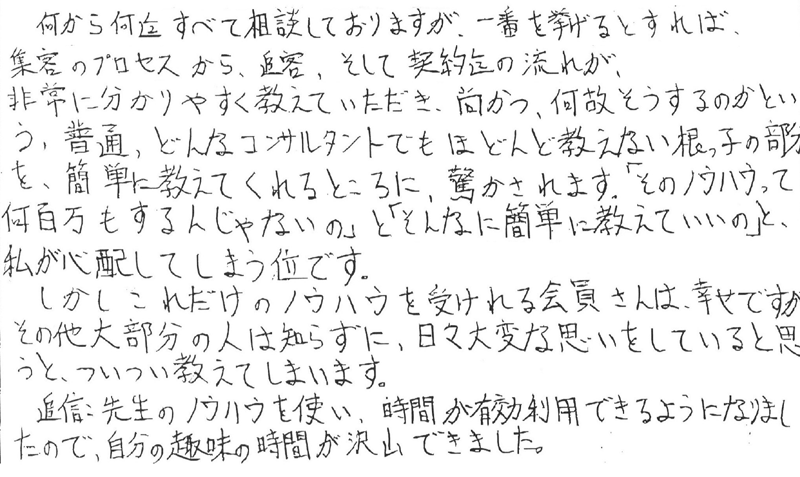 何から何迄すべて相談しておりますが、一番を挙げるとすれば、
集客のプロセスから、追客、そして契約迄の流れが、
非常に分かりやすく教えていただき、尚かつ、何故そうするのかとい
う、普通、どんなコンサルタントでもほどんど教えない根っ子の部分
を、簡単に教えてくれるところに、驚かされます。「そのノウハウって
何百万もするんじゃないの」と「そんなに簡単に教えていいの」と、
私が心配してしまう位です。
しかしこれだけのノウハウを受けれる会員さんは、幸せですが
その他大部分の人は知らずに、日々大変な思いをしていると思
うと、ついつい教えてしまいます。
追信：先生のノウハウを使い、時間が有効利用できるようになりまし
たので、自分の趣味の時間が沢山できました。